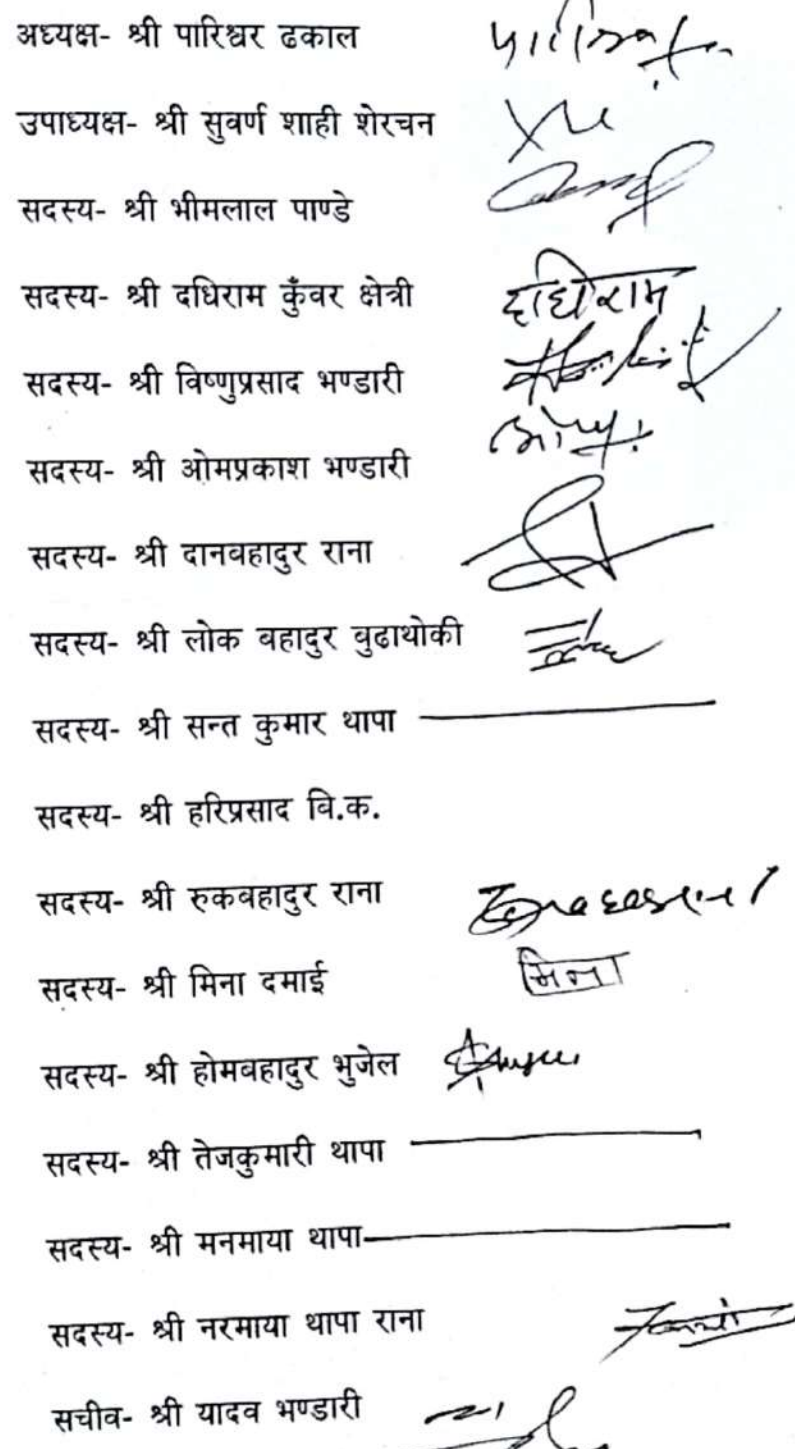 अध्यक्ष- श्री पारिश्वर ढकाल
उपाध्यक्ष- श्री सुवर्ण शाही शेरचन
सदस्य- श्री भीमलाल पाण्डे
सदस्य- श्री दधिराम कुँवर क्षेत्री दधिराम
सदस्य- श्री विष्णुप्रसाद भण्डारी
सदस्य- श्री ओमप्रकाश भण्डारी
सदस्य- श्री दानवहादुर राना
सदस्य- श्री लोक वहादुर वुढाथोकी
सदस्य- श्री सन्त कुमार थापा
सदस्य- श्री हरिप्रसाद वि.क.
सदस्य- श्री रुकवहादुर राना
सदस्य- श्री मिना दमाई मिना
सदस्य- श्री होमवहादुर भुजेल
सदस्य- श्री तेजकुमारी थापा
सदस्य- श्री मनमाया थापा
सदस्य- श्री नरमाया थापा राना
सचीव- श्री यादव भण्डारी